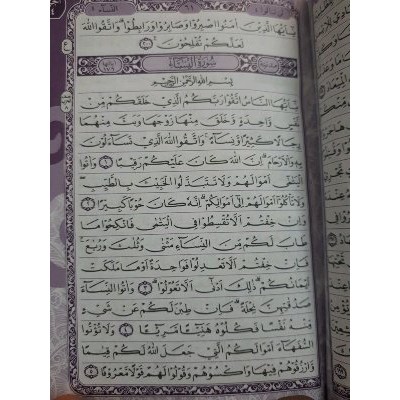 يَٰٓأَيُّهَا ٱلَّذِينَ ءَامَنُوا۟ ٱصْبِرُوا۟ وَصَابِرُوا۟ وَرَابِطُوا۟ وَٱتَّقُوا۟ ٱللَّهَ
لَعَلَّكُمْ تُفْلِحُونَ ٢٠٠
سُورَةُ النِّسَاءِ
بِسْمِ ٱللَّهِ ٱلرَّحْمَٰنِ ٱلرَّحِيمِ
يَٰٓأَيُّهَا ٱلنَّاسُ ٱتَّقُوا۟ رَبَّكُمُ ٱلَّذِى خَلَقَكُم مِّن
نَّفْسٍ وَٰحِدَةٍ وَخَلَقَ مِنْهَا زَوْجَهَا وَبَثَّ مِنْهُمَا
رِجَالًا كَثِيرًا وَنِسَآءً ۚ وَٱتَّقُوا۟ ٱللَّهَ ٱلَّذِى تَسَآءَلُونَ
بِهِۦ وَٱلْأَرْحَامَ ۚ إِنَّ ٱللَّهَ كَانَ عَلَيْكُمْ رَقِيبًا ١ وَءَاتُوا۟
ٱلْيَتَٰمَىٰٓ أَمْوَٰلَهُمْ ۖ وَلَا تَتَبَدَّلُوا۟ ٱلْخَبِيثَ بِٱلطَّيِّبِ ۖ
وَلَا تَأْكُلُوٓا۟ أَمْوَٰلَهُمْ إِلَىٰٓ أَمْوَٰلِكُمْ ۚ إِنَّهُۥ كَانَ حُوبًا كَبِيرًا ٢
وَإِنْ خِفْتُمْ أَلَّا تُقْسِطُوا۟ فِى ٱلْيَتَٰمَىٰ فَٱنكِحُوا۟ مَا
طَابَ لَكُم مِّنَ ٱلنِّسَآءِ مَثْنَىٰ وَثُلَٰثَ وَرُبَٰعَ ۖ
فَإِنْ خِفْتُمْ أَلَّا تَعْدِلُوا۟ فَوَٰحِدَةً أَوْ مَا مَلَكَتْ
أَيْمَٰنُكُمْ ۚ ذَٰلِكَ أَدْنَىٰٓ أَلَّا تَعُولُوا۟ ٣ وَءَاتُوا۟ ٱلنِّسَآءَ
صَدُقَٰتِهِنَّ نِحْلَةً ۚ فَإِن طِبْنَ لَكُمْ عَن شَىْءٍ
مِّنْهُ نَفْسًا فَكُلُوهُ هَنِيٓـًٔا مَّرِيٓـًٔا ٤ وَلَا تُؤْتُوا۟
ٱلسُّفَهَآءَ أَمْوَٰلَكُمُ ٱلَّتِى جَعَلَ ٱللَّهُ لَكُمْ قِيَٰمًا
وَٱرْزُقُوهُمْ فِيهَا وَٱكْسُوهُمْ وَقُولُوا۟ لَهُمْ قَوْلًا مَّعْرُوفًا ٥